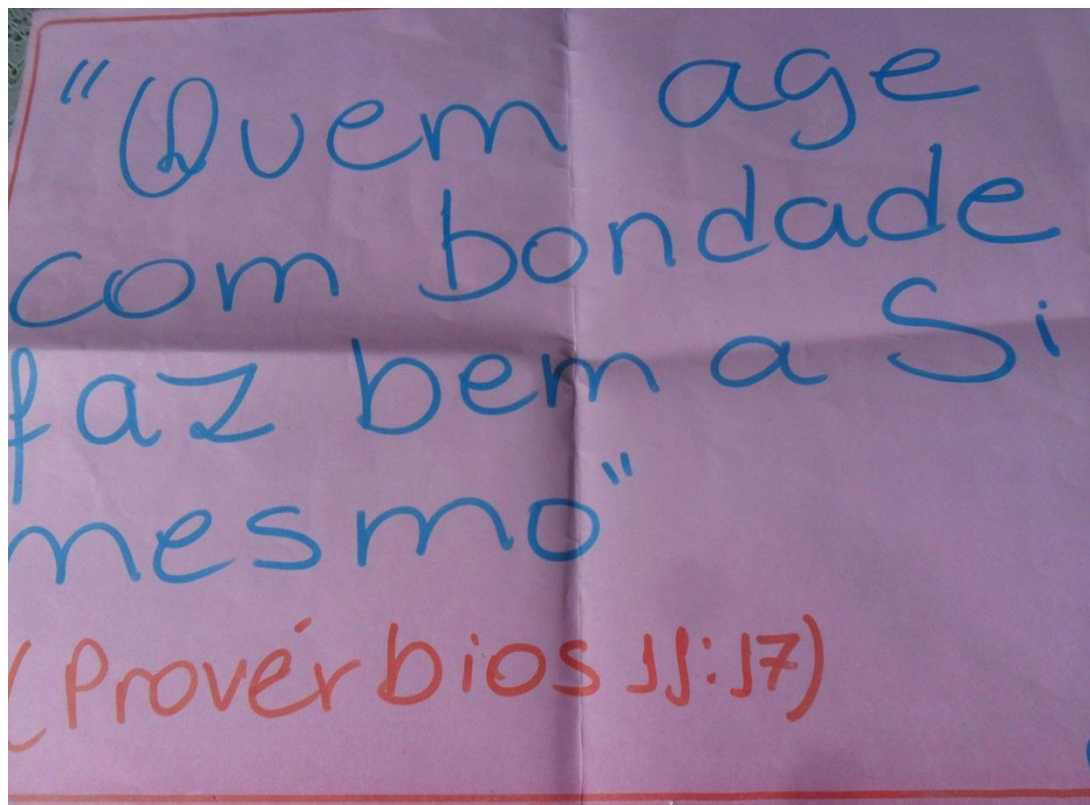 "Quem age
com bondade
faz bem a Si
mesmo"
(Provérbios 11:17)